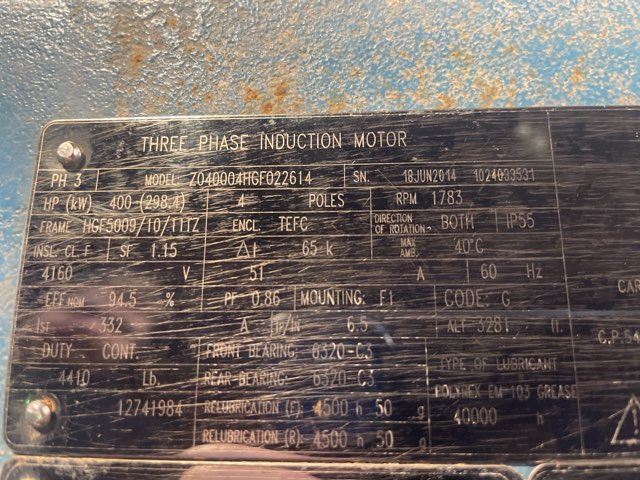 THREE PHASE INDUCTION MOTOR
PH 3 MODEL: Z040004HGF022614 SN. 18JUN2014 1024033531
HP (kW) 400 (298.4) 4 POLES RPM 1783
FRAME HGF5009/10/11TZ ENCL. TEFC DIRECTION OF ROTATION BOTH IP55
INSL. CL. F SF 1.15 Δt 65 k MAX AMB. 40°C
4160 V 51 A 60 Hz
EFF NOM 94.5 % PF 0.86 MOUNTING: F1 CODE: G
Ist 332 A Ip/In 6.5 ALT 3281 ft
DUTY CONT. FRONT BEARING: 6320-C3 TYPE OF LUBRICANT
4410 Lb. REAR BEARING: 6320-C3 POLYREX EM 103 GREASE
12741984 RELUBRICATION (F): 4500 h 50 g 40000 h
RELUBRICATION (R): 4500 h 50 g
CAR
C.P.54